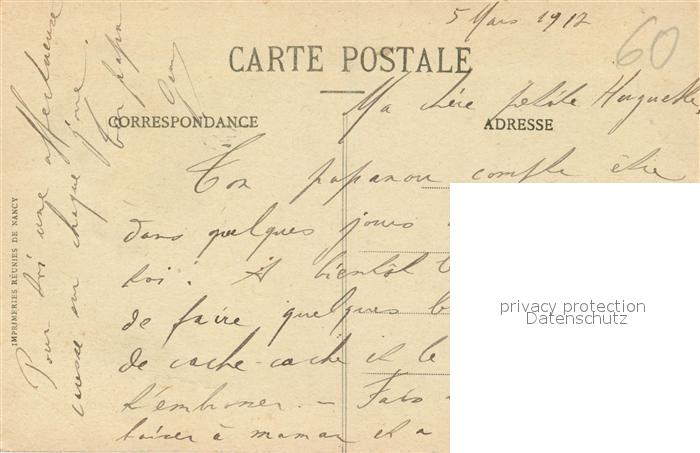 5 Mars 1912
60
CARTE POSTALE
CORRESPONDANCE
ADRESSE
Ma chère petite Huguette,
Ton papanou compte être
dans quelques jours
toi. A bientôt
de faire quelques
de cache-cache et le
t'embrasser. – Fais
baiser à maman et a
Pour toi une affectueuse
caresse sur chaque joue.
Ton papa
IMPRIMERIES RÉUNIES DE NANCY
privacy protection
Datenschutz